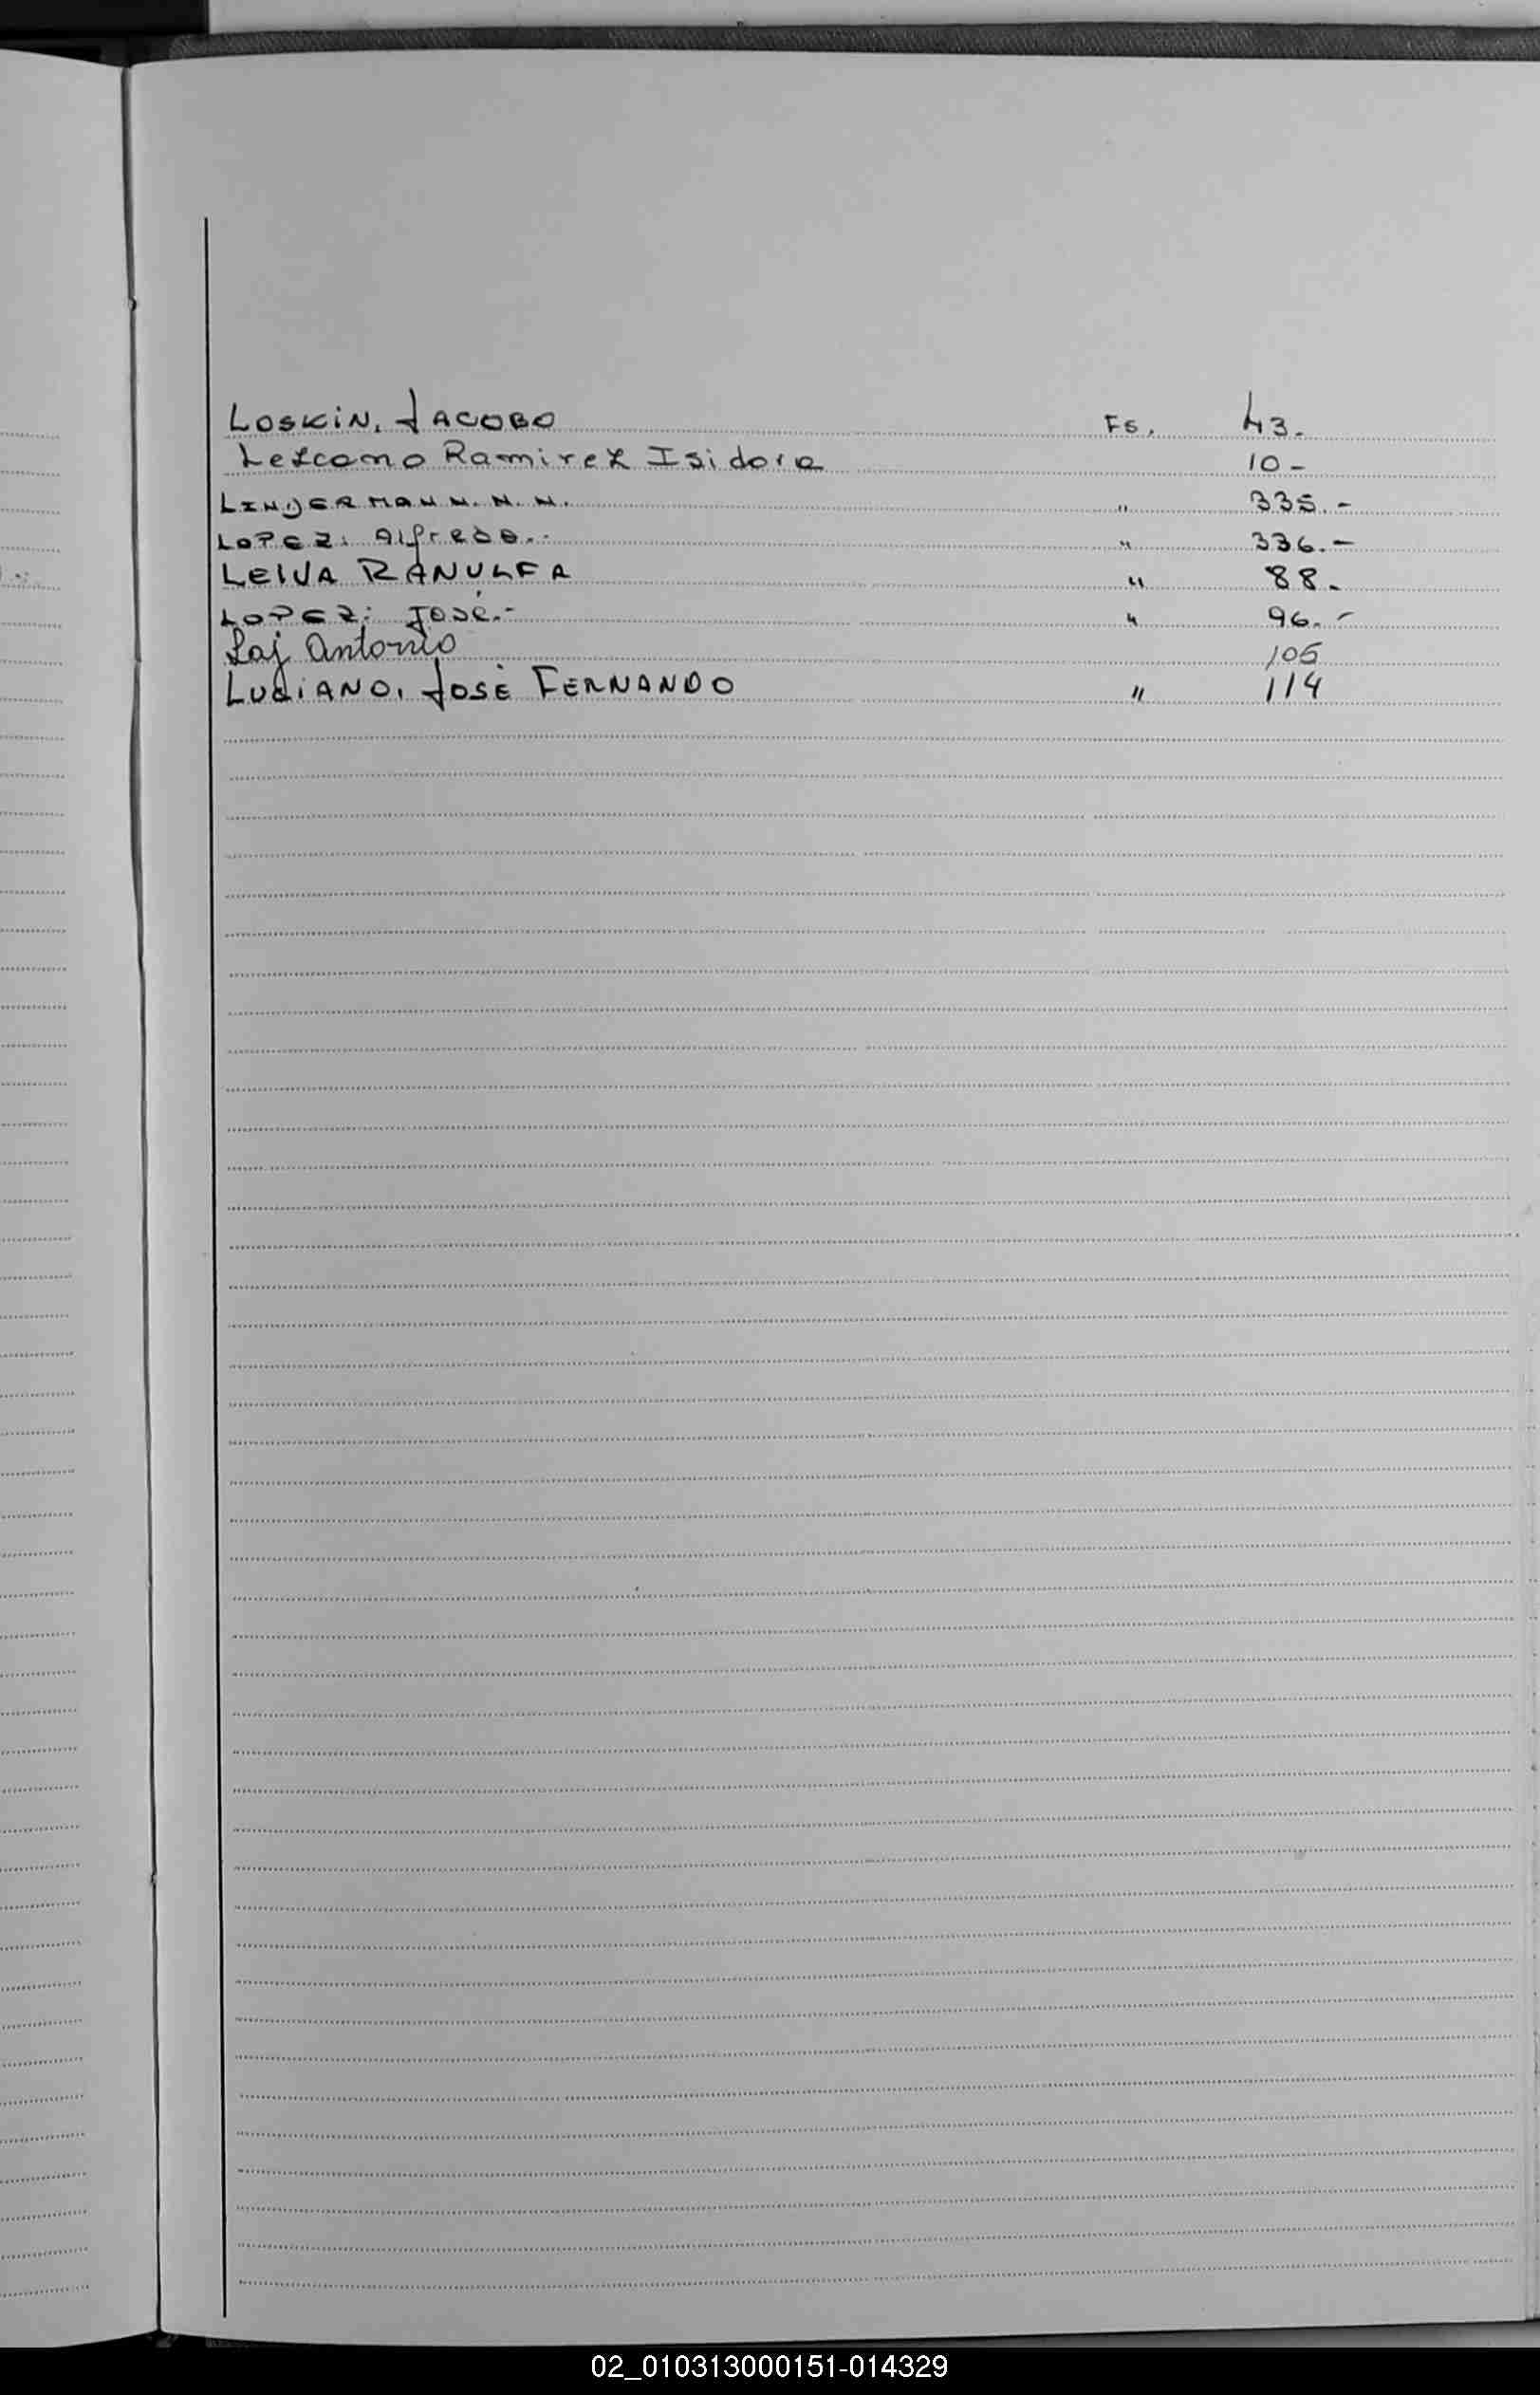 LOSKIN, JACOBO Fs. 43.
Lezcano Ramirez Isidora 10-
LINJERMANN. N. N. " 335.-
LOPEZ: Alfredo.- " 336.-
LEIVA RANULFA " 88.
LOPEZ: José.- " 96.-
Laj Antonio 105
LUCIANO, JOSÉ FERNANDO " 114
02_010313000151-014329